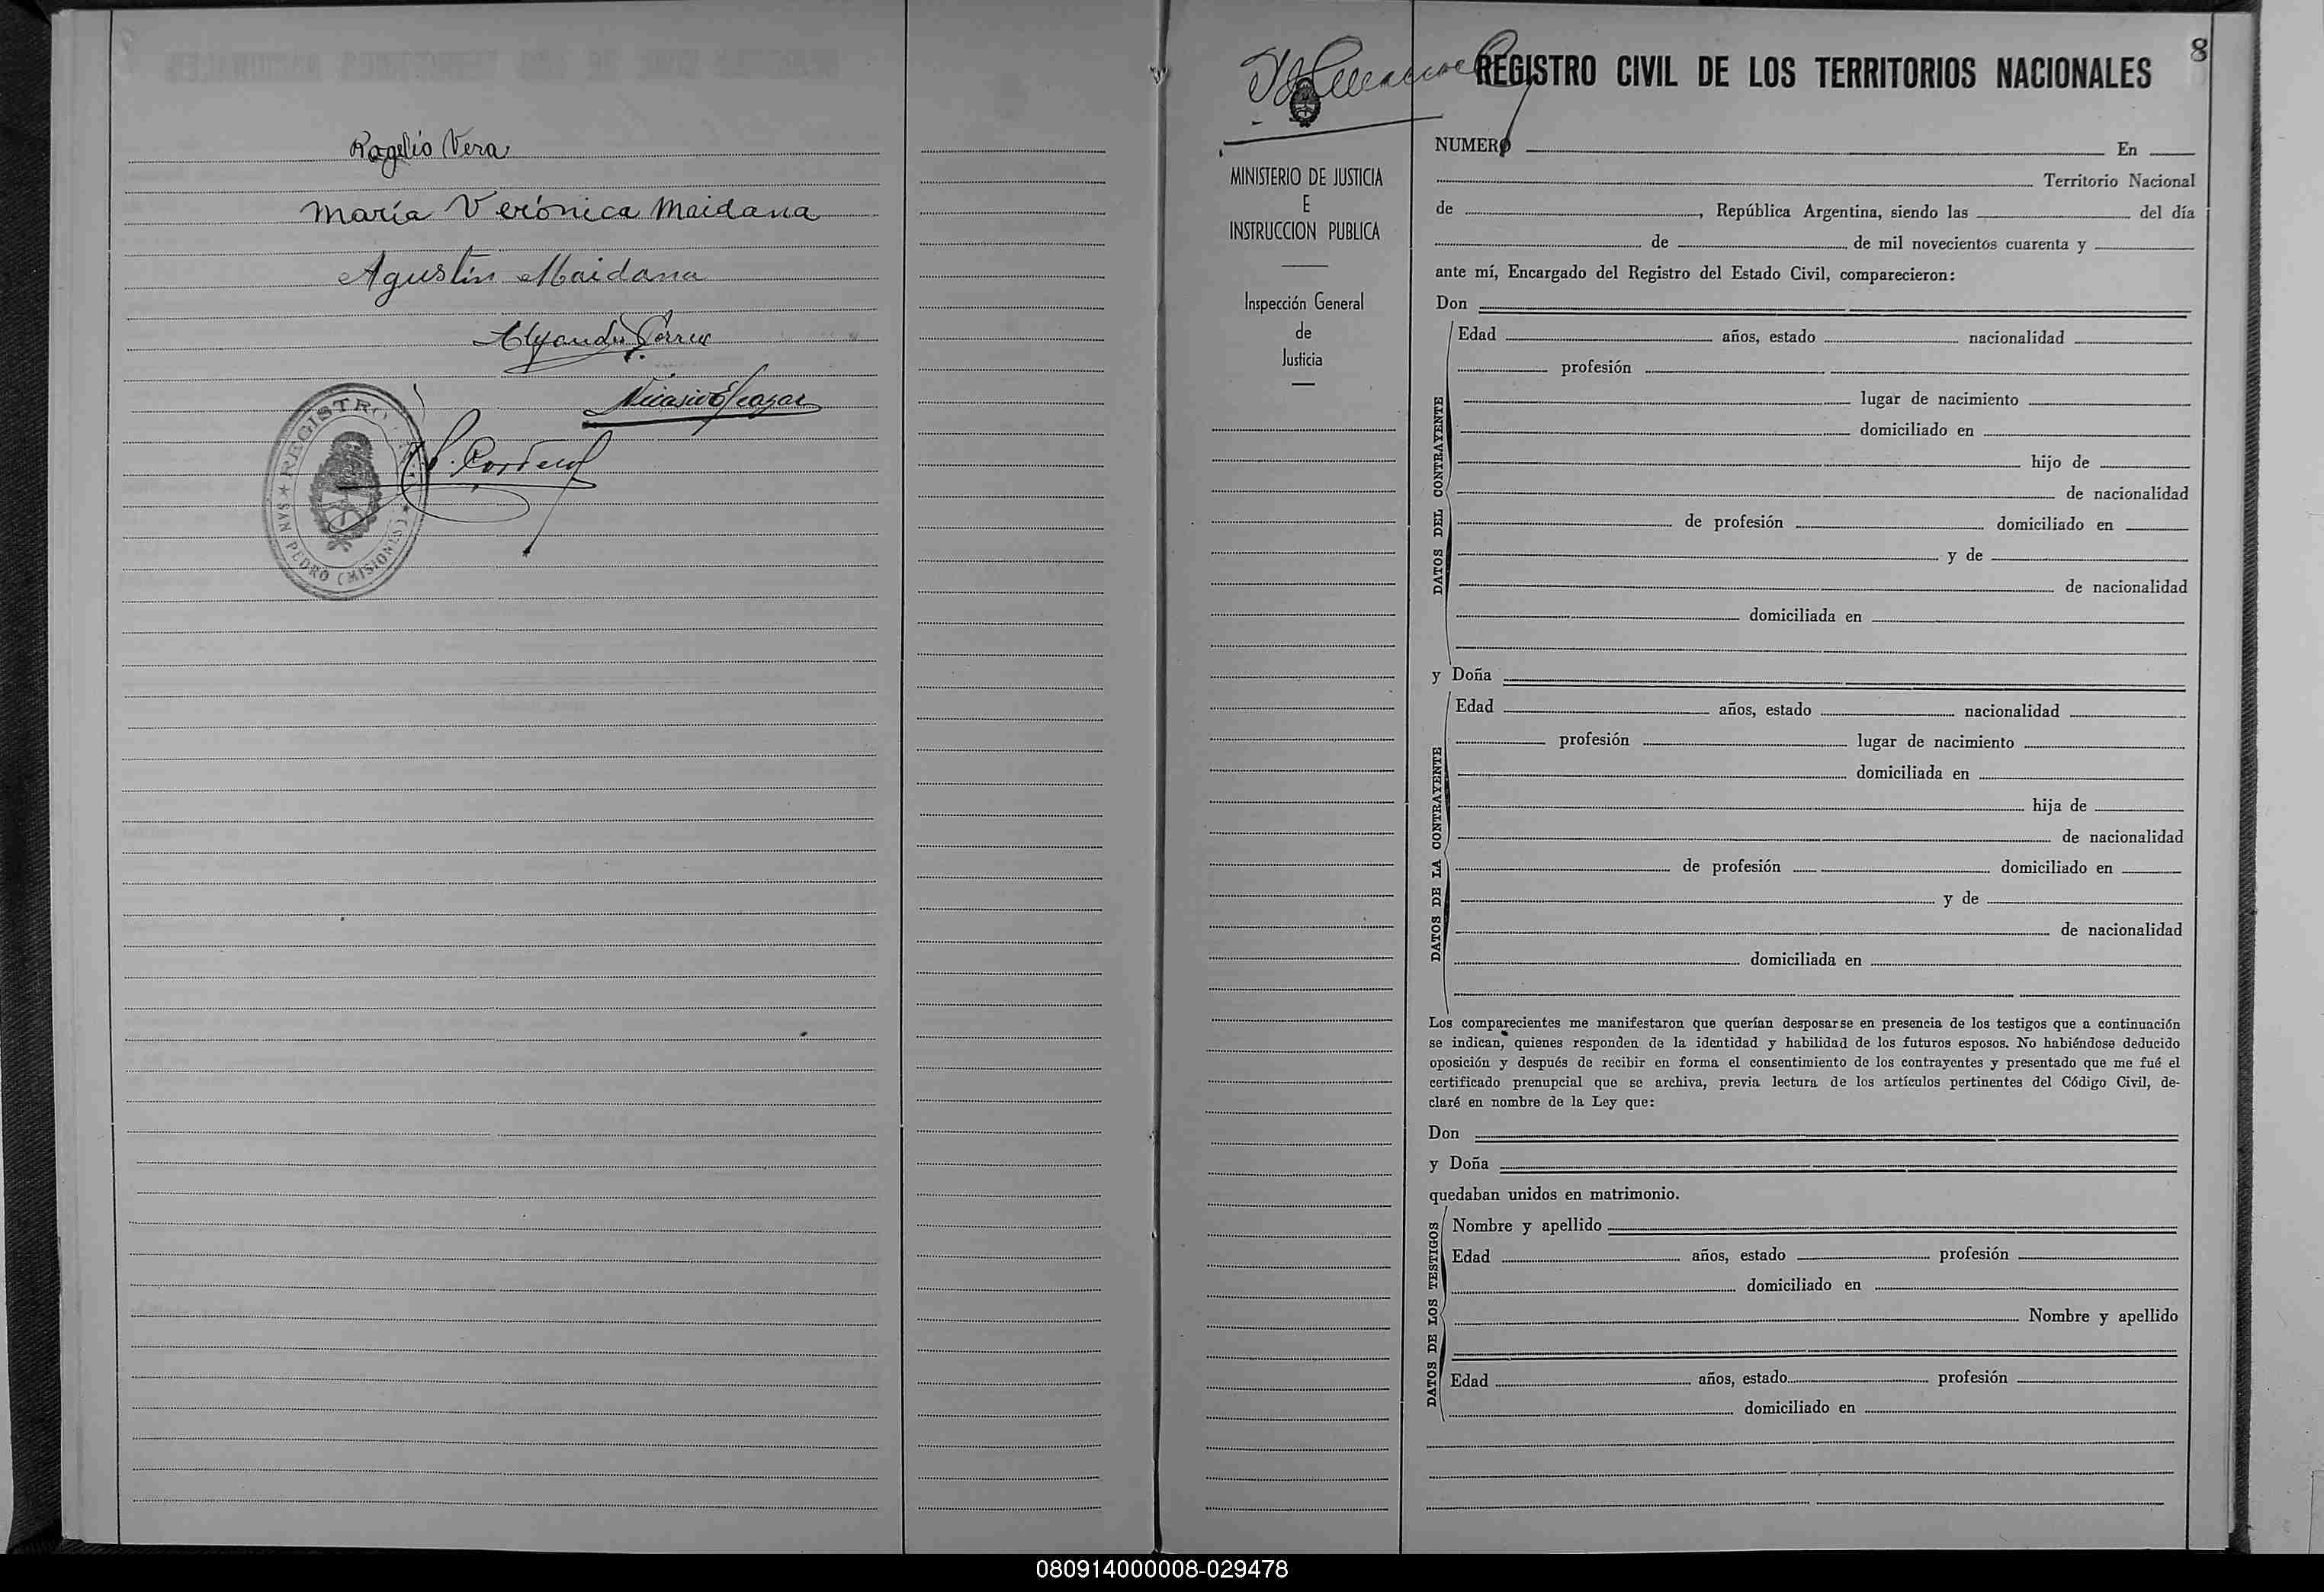 Rogelio Vera
María Verónica Maidana
Agustín Maidana
REGISTRO
SAN PEDRO (MISIONES)
8
REGISTRO CIVIL DE LOS TERRITORIOS NACIONALES
MINISTERIO DE JUSTICIA
E
INSTRUCCION PUBLICA
Inspección General
de
Justicia
NUMERO En
Territorio Nacional
de , República Argentina, siendo las del día
de de mil novecientos cuarenta y
ante mí, Encargado del Registro del Estado Civil, comparecieron:
Don
DATOS DEL CONTRAYENTE
Edad años, estado nacionalidad
profesión
lugar de nacimiento
domiciliado en
hijo de
de nacionalidad
de profesión domiciliado en
y de
de nacionalidad
domiciliada en
y Doña
DATOS DE LA CONTRAYENTE
Edad años, estado nacionalidad
profesión lugar de nacimiento
domiciliada en
hija de
de nacionalidad
de profesión domiciliado en
y de
de nacionalidad
domiciliada en
Los comparecientes me manifestaron que querían desposarse en presencia de los testigos que a continuación
se indican, quienes responden de la identidad y habilidad de los futuros esposos. No habiéndose deducido
oposición y después de recibir en forma el consentimiento de los contrayentes y presentado que me fué el
certificado prenupcial que se archiva, previa lectura de los artículos pertinentes del Código Civil, de-
claré en nombre de la Ley que:
Don
y Doña
quedaban unidos en matrimonio.
DATOS DE LOS TESTIGOS
Nombre y apellido
Edad años, estado profesión
domiciliado en
Nombre y apellido
Edad años, estado profesión
domiciliado en
080914000008-029478